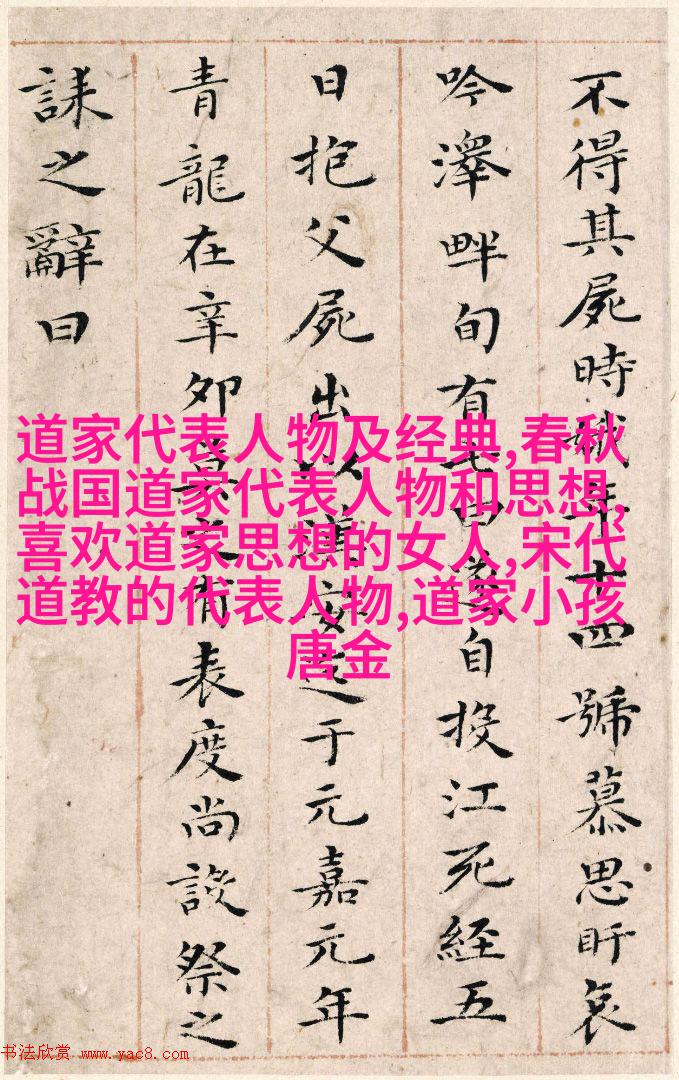 不得其屍時娥年十四號慕思盱哀
吟澤畔旬有七日遂自投江死經五
日抱父屍出以漢安迄于元嘉元年
青龍在辛卯莫之有表度尚設祭之
誄之辭曰
道家代表人物及经典,春秋
战国道家代表人物和思想,
喜欢道家思想的女人,宋代
道教的代表人物,道家小孩
唐金
书法欣赏 www.yac8.com